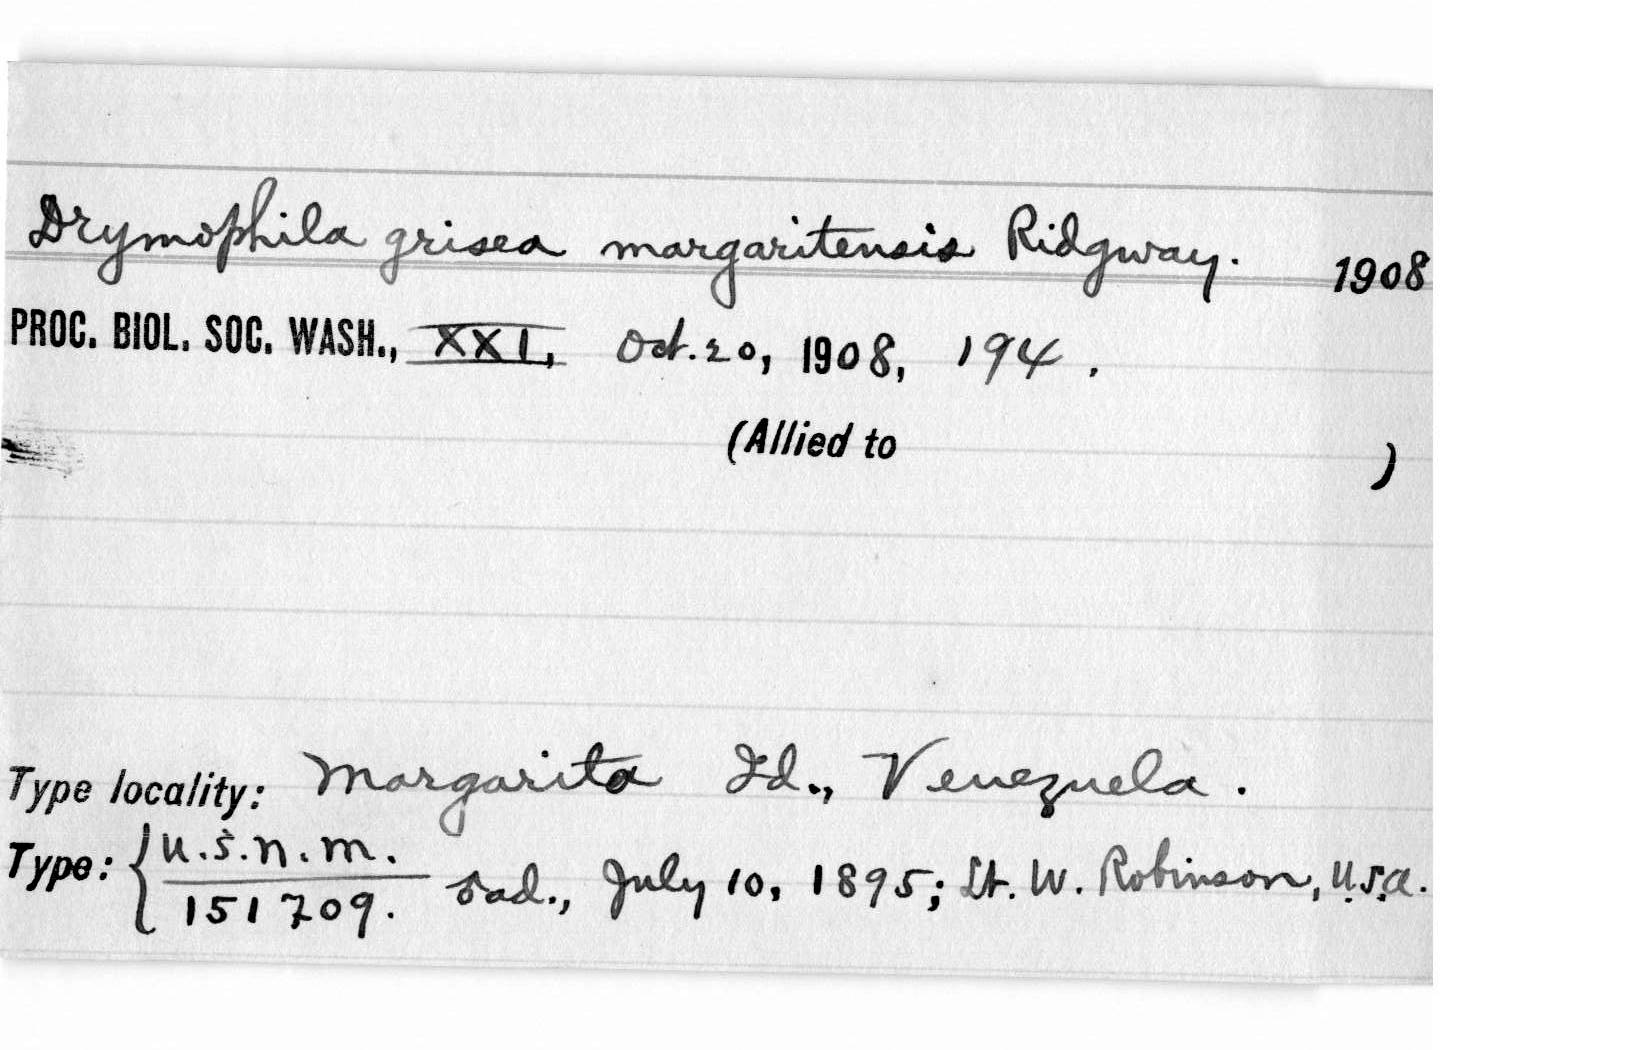 Drymophila grisea margaritensis Ridgway. 1908
PROC. BIOL. SOC. WASH., XXI, Oct. 20, 1908, 194.
(Allied to )
Type locality: Margarita Id., Venezuela.
Type: { U.S.N.M. / 151709. ♂ ad., July 10, 1895; Lt. W. Robinson, U.S.A.